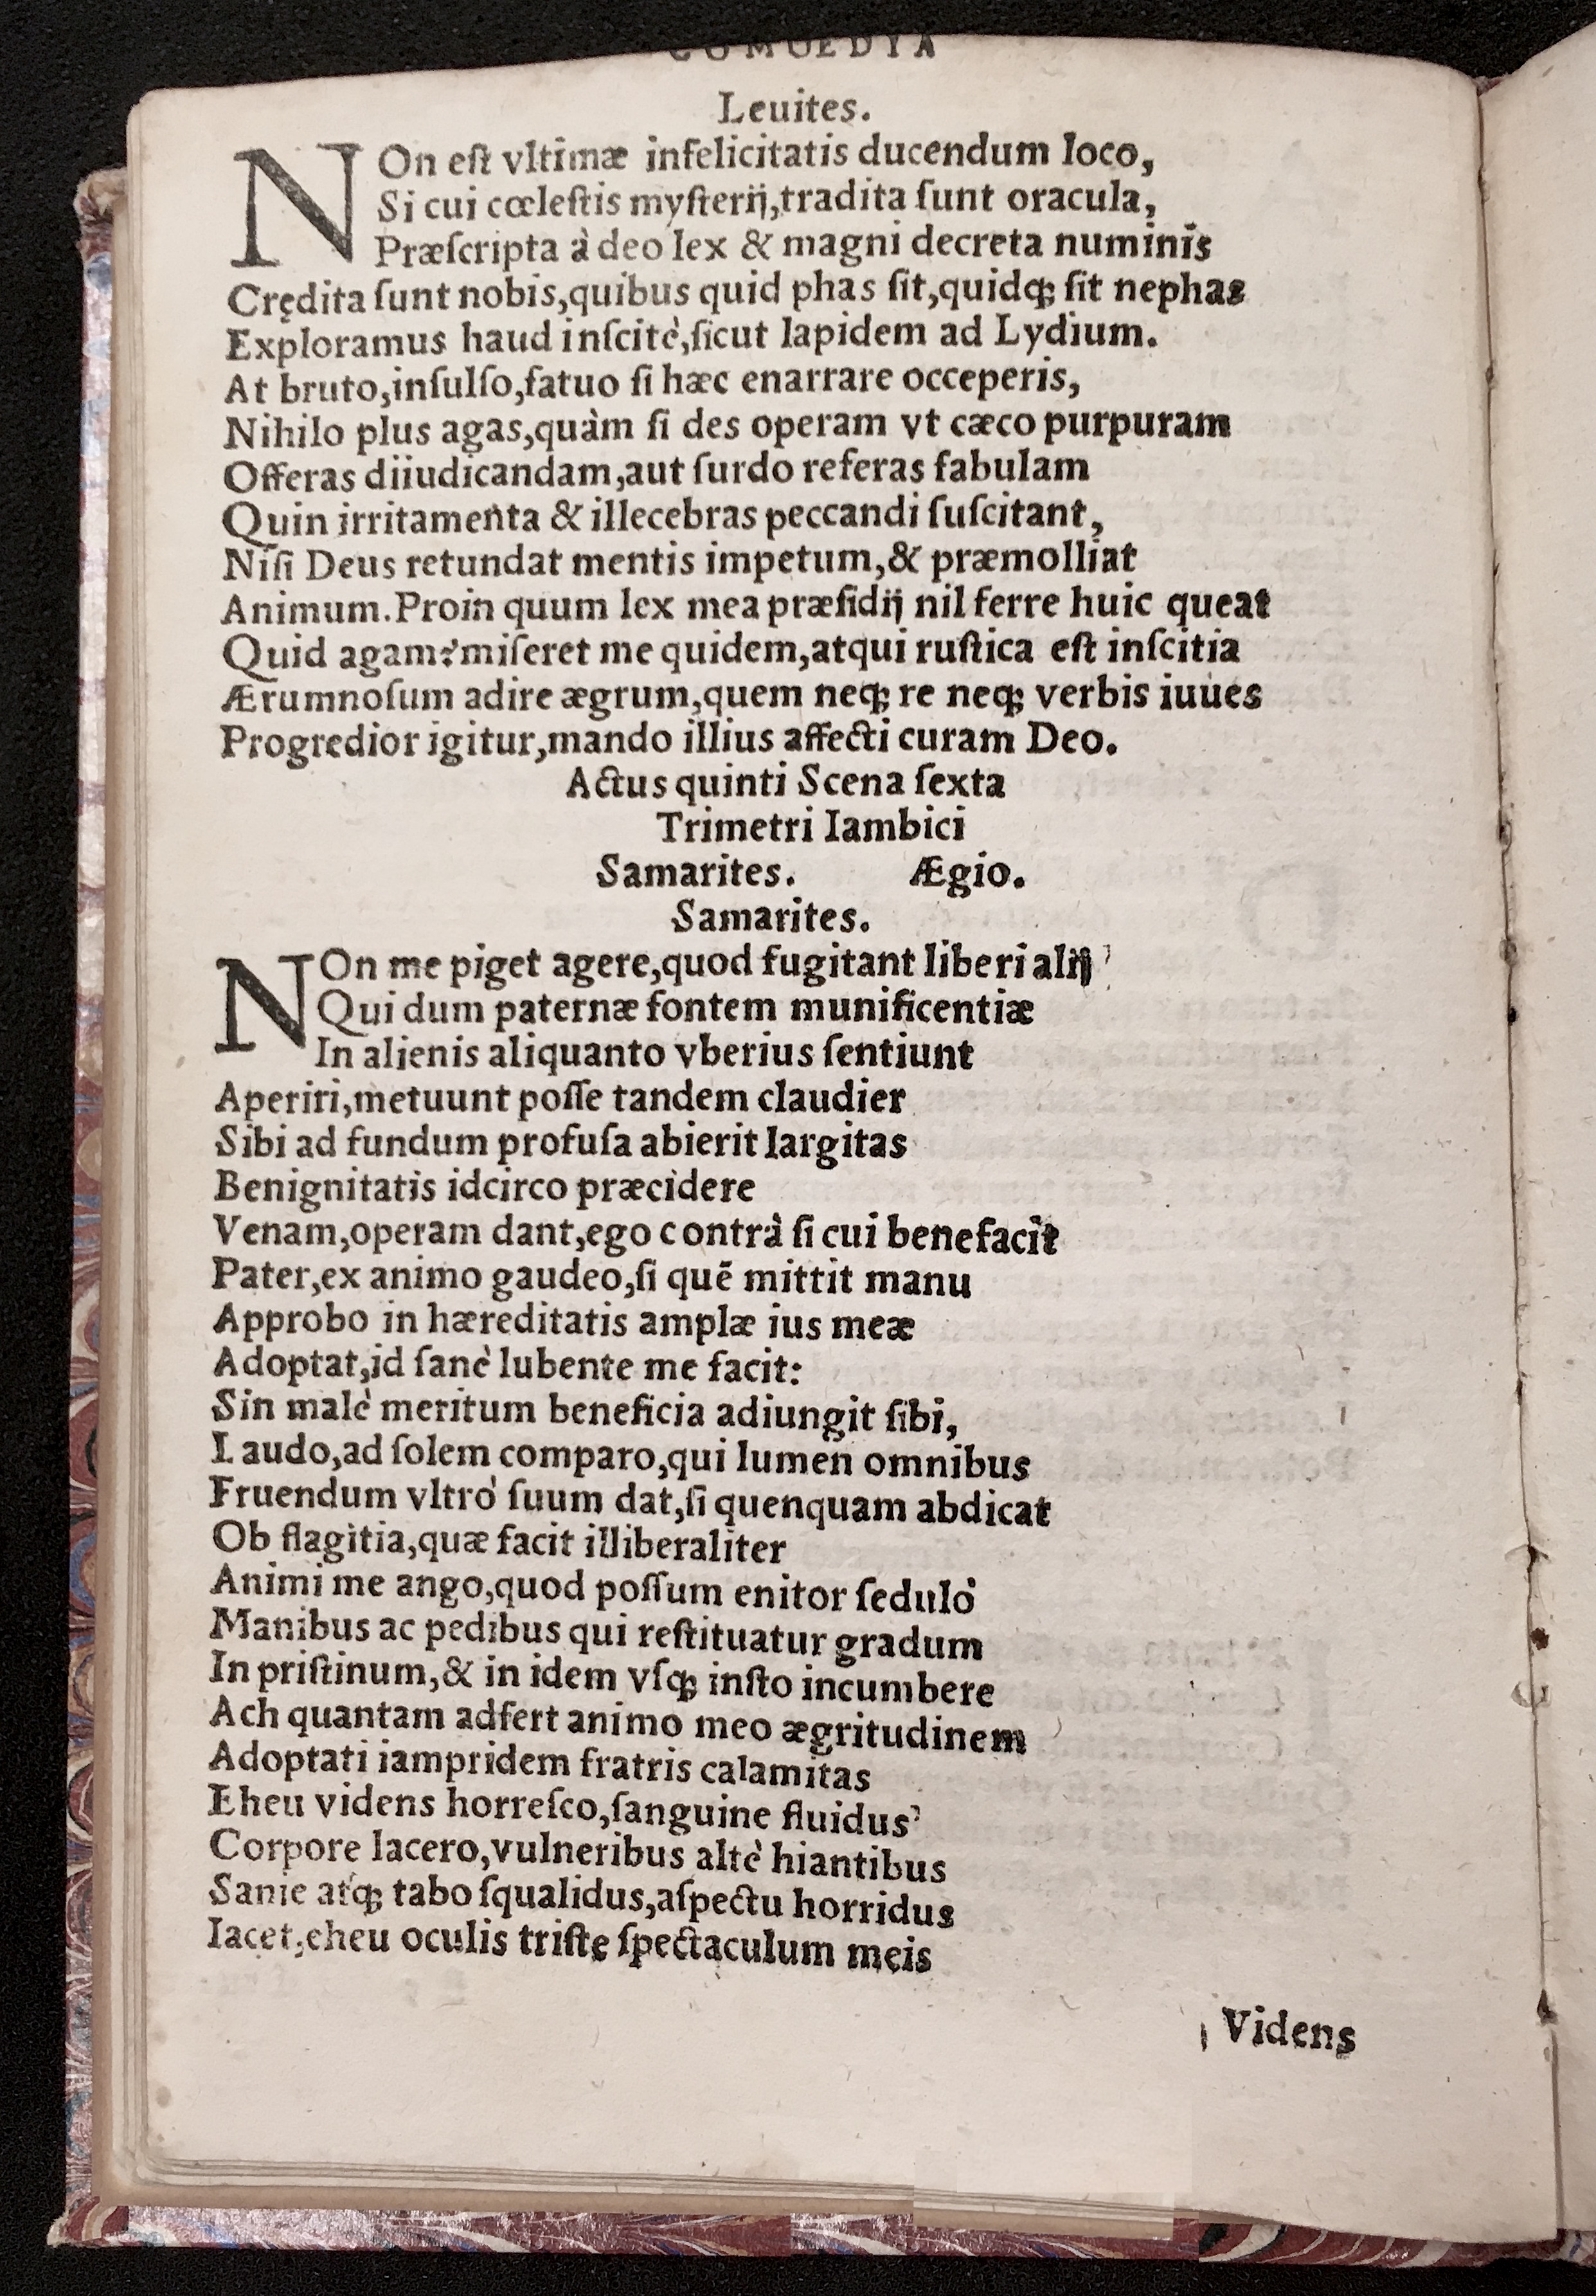 COMOEDYA
Leuites.
NOn eſt vltimæ infelicitatis ducendum loco,
Si cui cœleſtis myſterij,tradita ſunt oracula,
Præſcripta à deo lex & magni decreta numinis
Crędita ſunt nobis,quibus quid phas ſit,quidq; ſit nephas
Exploramus haud inſcitè,ſicut lapidem ad Lydium.
At bruto,inſulſo,fatuo ſi hæc enarrare occeperis,
Nihilo plus agas,quàm ſi des operam vt cæco purpuram
Offeras diiudicandam,aut ſurdo referas fabulam
Quin irritamenta & illecebras peccandi ſuſcitant,
Niſi Deus retundat mentis impetum,& præmolliat
Animum.Proin quum lex mea præſidij nil ferre huic queat
Quid agam?miſeret me quidem,atqui ruſtica eſt inſcitia
Ærumnoſum adire ægrum,quem neq; re neq; verbis iuues
Progredior igitur,mando illius affecti curam Deo.
Actus quinti Scena ſexta
Trimetri Iambici
Samarites. Ægio.
Samarites.
NOn me piget agere,quod fugitant liberi alij
Qui dum paternæ fontem munificentiæ
In alienis aliquanto vberius ſentiunt
Aperiri,metuunt poſſe tandem claudier
Sibi ad fundum profuſa abierit largitas
Benignitatis idcirco præcidere
Venam,operam dant,ego contrà ſi cui benefacit
Pater,ex animo gaudeo,ſi quē mittit manu
Approbo in hæreditatis amplæ ius meæ
Adoptat,id ſanè lubente me facit:
Sin malè meritum beneficia adiungit ſibi,
Laudo,ad ſolem comparo,qui lumen omnibus
Fruendum vltrò ſuum dat,ſi quenquam abdicat
Ob flagitia,quæ facit illiberaliter
Animi me ango,quod poſſum enitor ſedulò
Manibus ac pedibus qui reſtituatur gradum
In priſtinum,& in idem vſq; inſto incumbere
Ach quantam adfert animo meo ægritudinem
Adoptati iampridem fratris calamitas
Eheu videns horreſco,ſanguine fluidus
Corpore lacero,vulneribus altè hiantibus
Sanie atq; tabo ſqualidus,aſpectu horridus
Iacet,eheu oculis triſte ſpectaculum meis
Videns